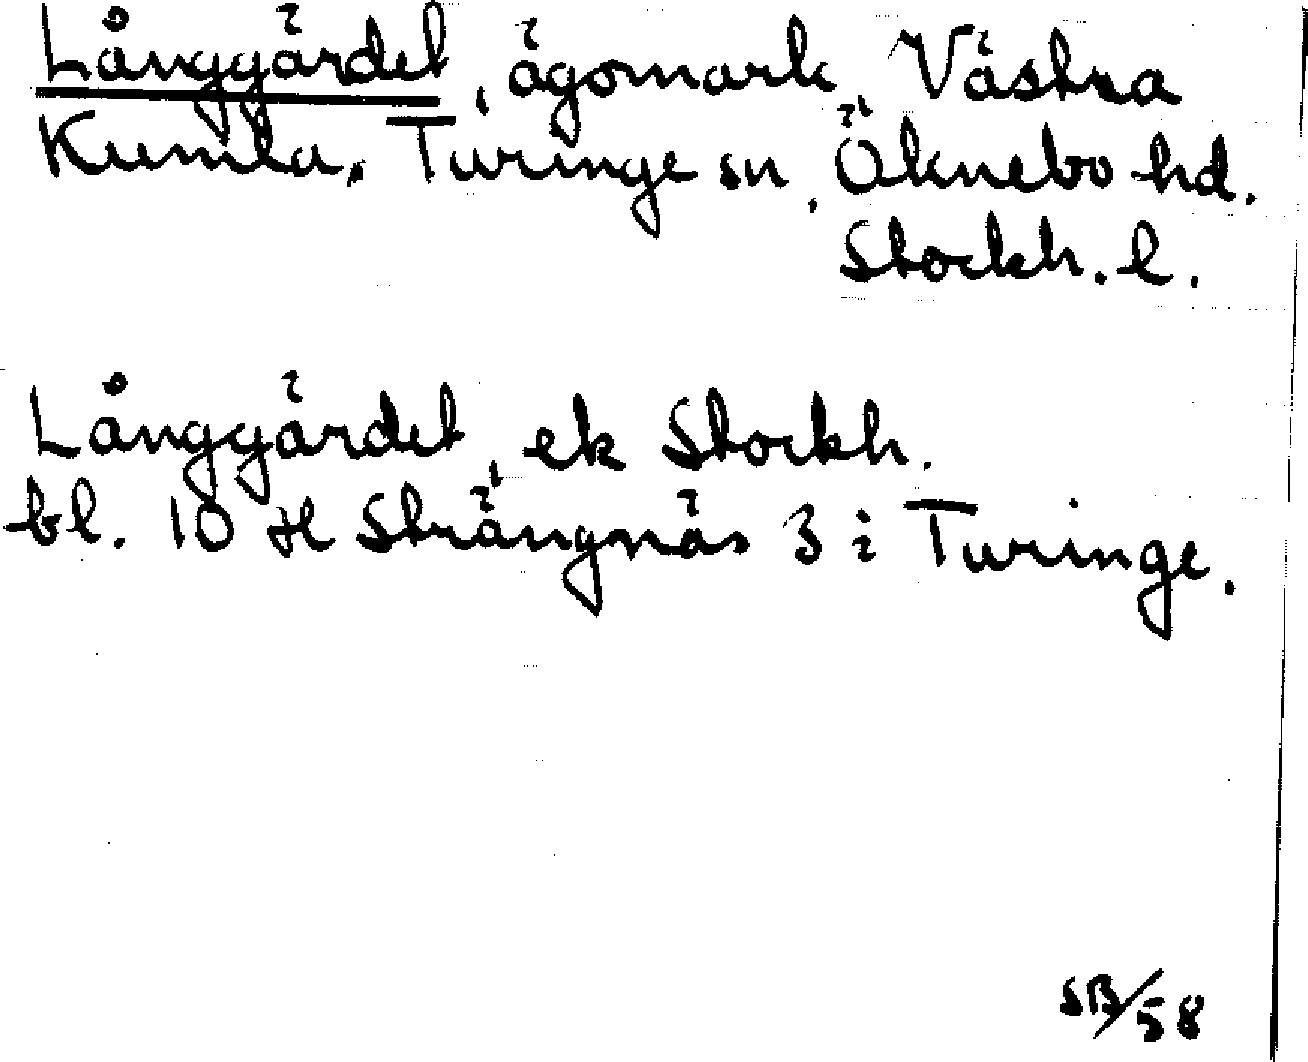 Långgärdet, ägomark, Västra
Kumla, Turinge sn, Öknebo hd.
Stockh. l.
Långgärdet, ek Stockh.
bl. 10 H Strängnäs 3 i Turinge.
SB/58